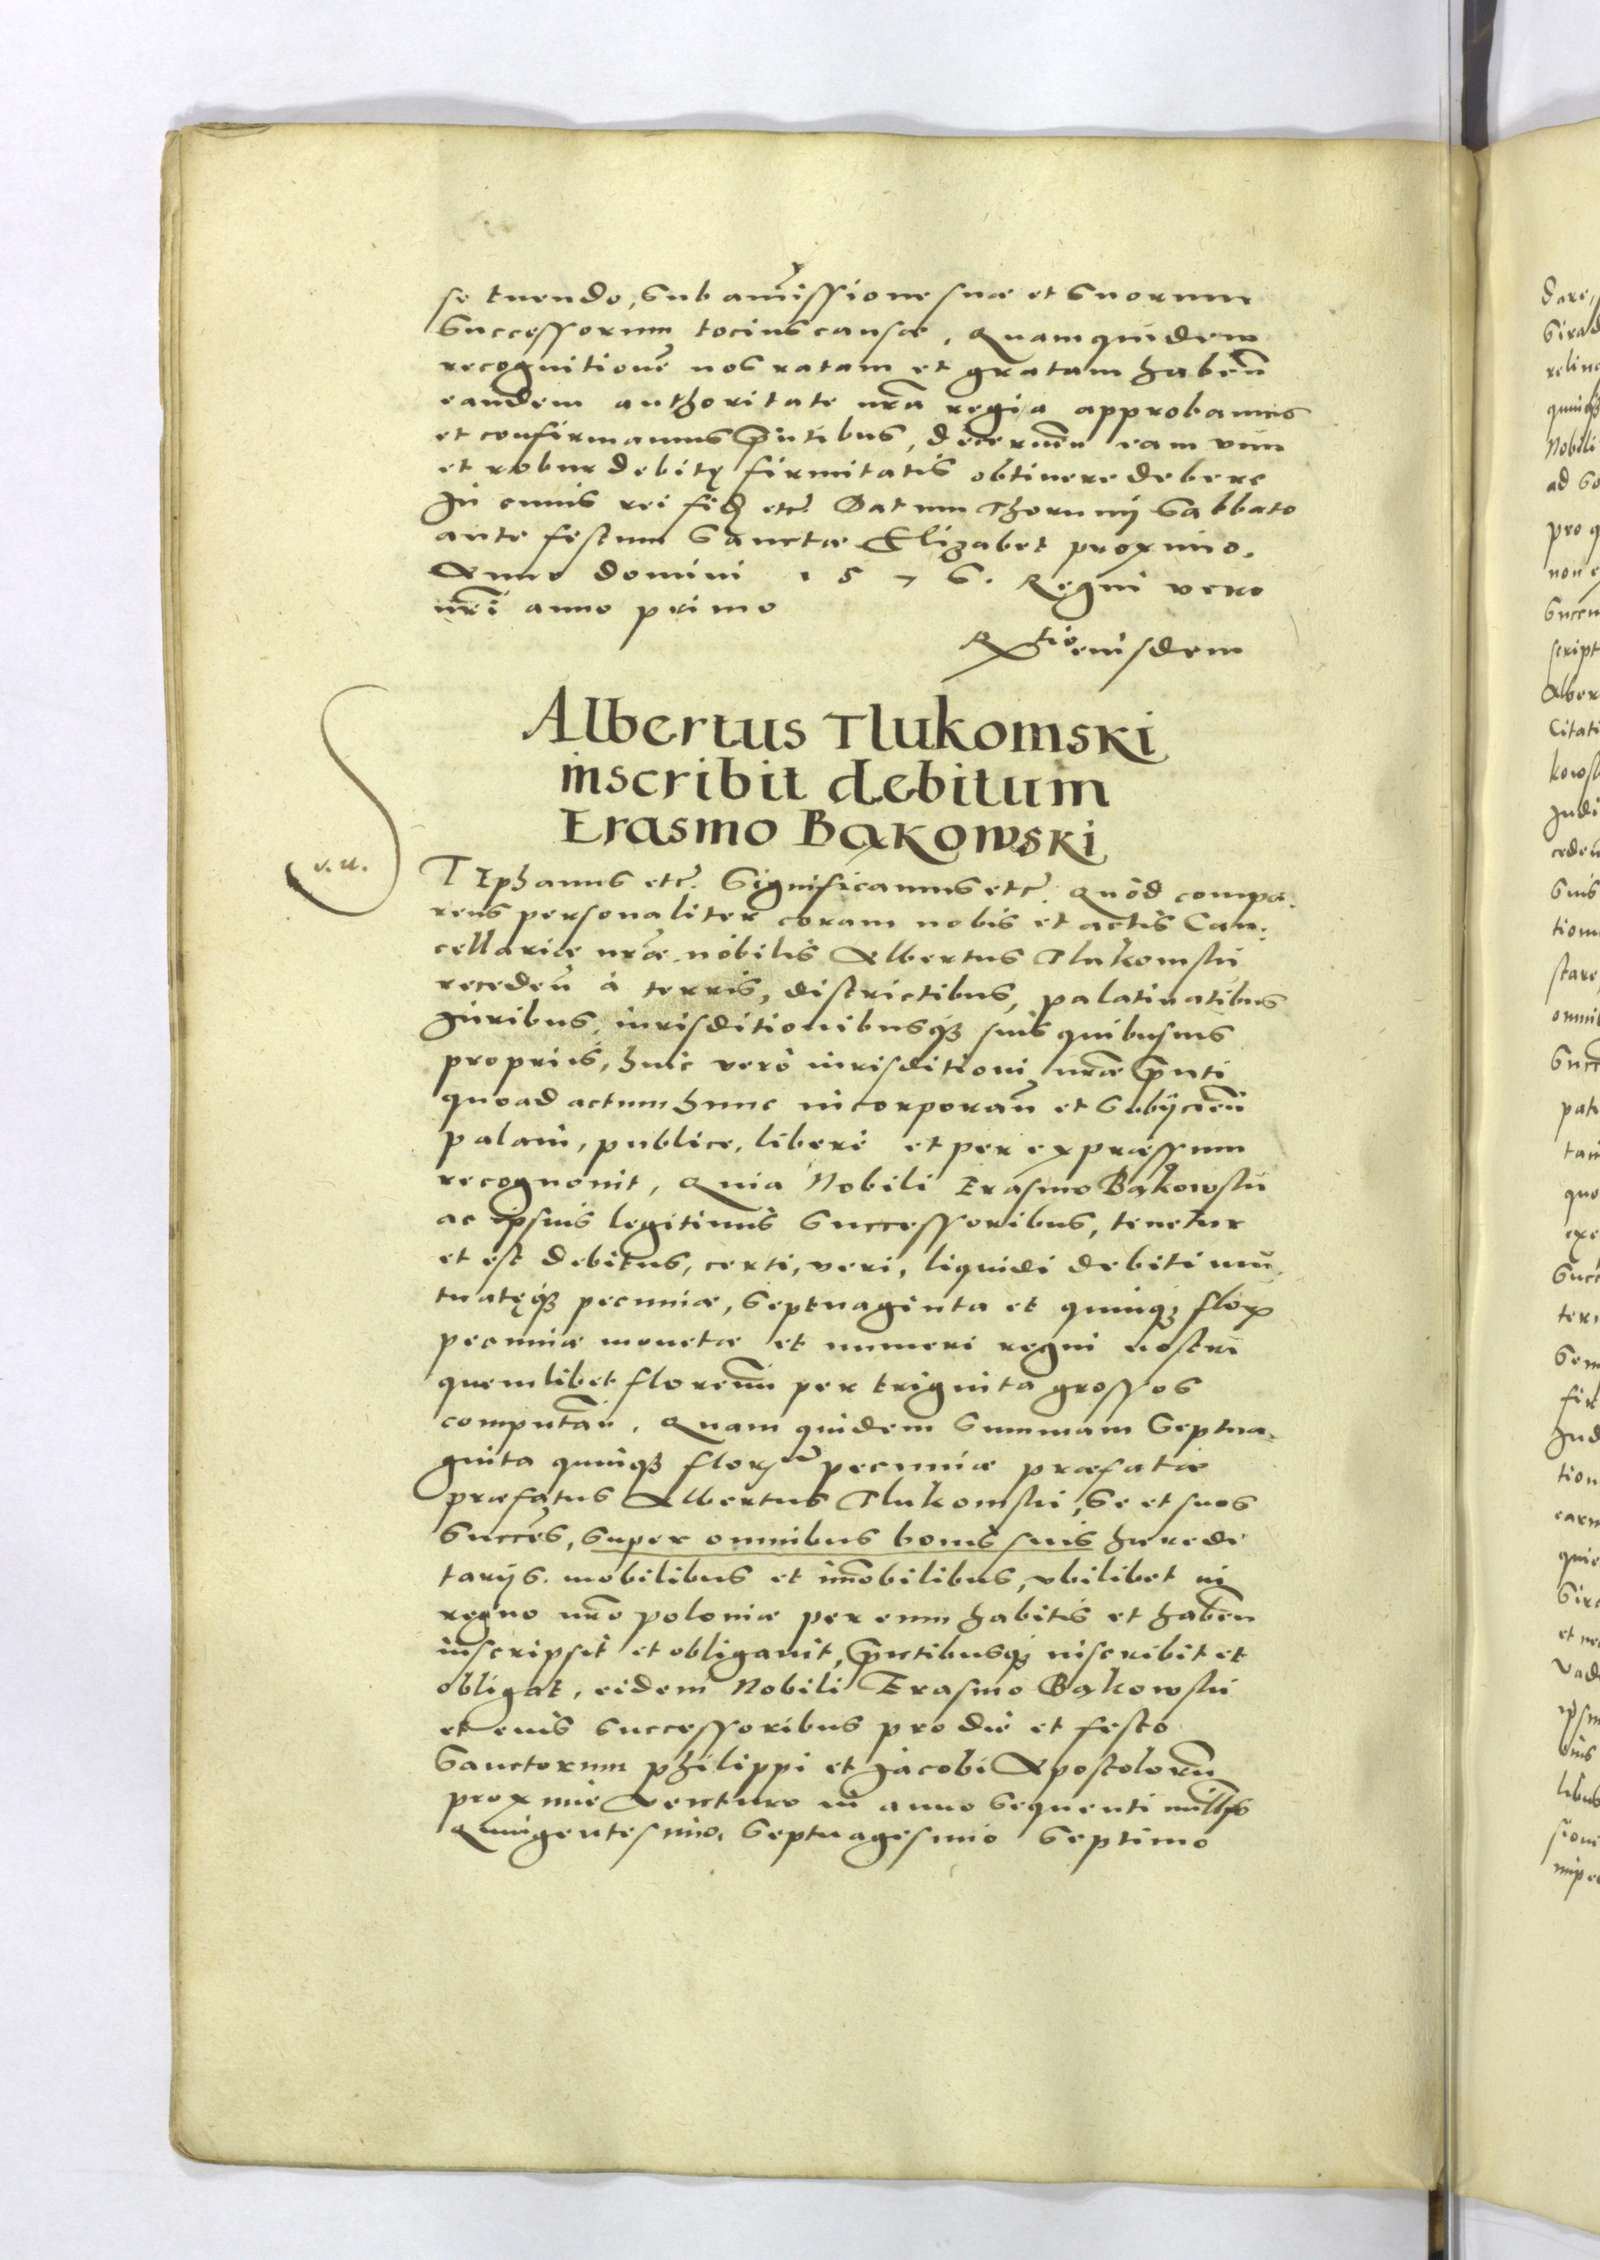 se tuendo, sub amissione suae et suorum
successorum tocius causae. Quam quidem
recognitionẽ nos ratam et gratam habeñ
eandem authoritate nr̃a regia approbamus
et confirmamus p̃ntibus, decerneñ eam vim
et robur debitę firmitatis obtinere debere
In cuius rei fid etc̃. Datum Thorunij Sabbato
ante festum Sanctae Elizabet proximo.
Anno domini 1576. Regni vero
nr̃i anno primo
Rtio eiusdem
Albertus Tlukomski
inscribit debitum
Erasmo Bąkowski
v. u.
STEphanus etc̃. Significamus etc̃. Quòd compa-
rens personaliter coram nobis et actis Can-
cellariae nr̃ae nobilis Albertus Tlukomski
recedeñ à terris, districtibus, palatinatibus
Iuribus, iurisditionibusq̃ suis quibusuis
proprijs, huic verò iurisditioni nr̃ae p̃nti
quoad actum hunc incorporañ et subijcieñ
palam, publice, liberè et per expraessum
recognouit, Quia Nobili Erasmo Bąkowski
ac ipsius legitimis successoribus, tenetur
et est debitus, certi, veri, liquidi debiti mu-
tuatęq̃ pecuniae, septuaginta et quinq̃ flor
pecuniae monetae et numeri regni nostri
quemlibet florenũ per triginta grossos
computañ. Quam quidem summam Septua-
ginta quinq̃ flor pecuniae praefatae
praefatus Albertus Tlukomski, se et suos
succes̃, super omnibus bonis suis haeredi
tarijs. mobilibus et im̃obilibus, vbilibet in
regno nr̃o poloniae per eum habitis et habeñ
inscripsit et obligauit, p̃ntibusq̃ inscribit et
obligat, eidem Nobili Erasmo Bąkowski
et eius successoribus pro die et festo
Sanctorum philippi et Iacobi Apostolorũ
proximè venturo in anno sequenti mill̃o
Quingentesimo, Septuagesimo Septimo